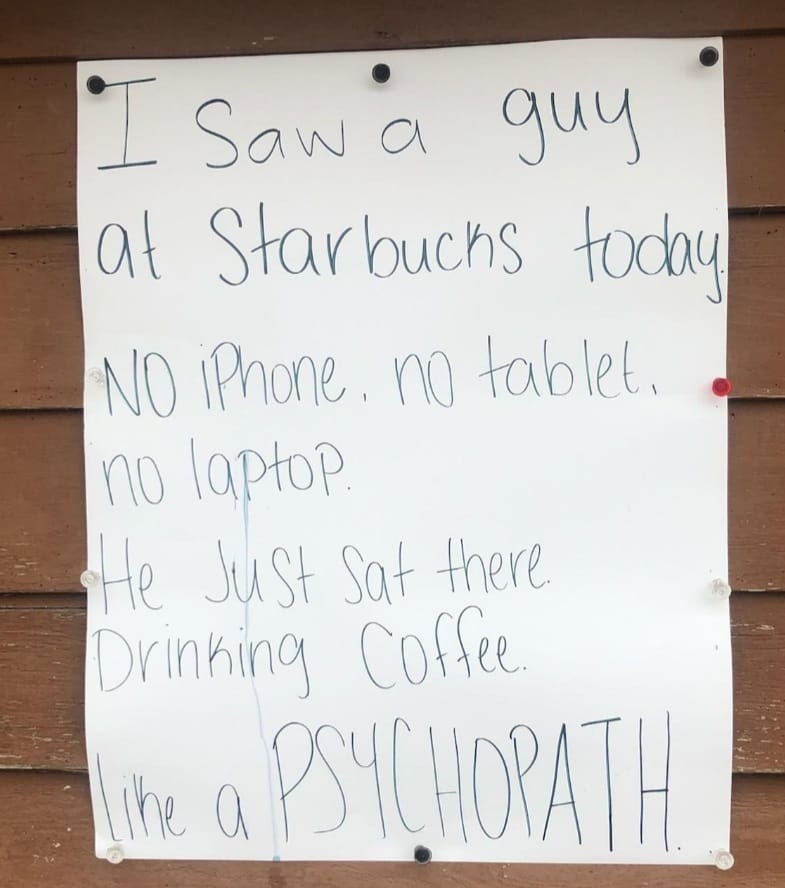 I saw a guy
at Starbucks today.
NO iPhone. no tablet.
no laptop.
He Just Sat there.
Drinking Coffee.
like a PSYCHOPATH.